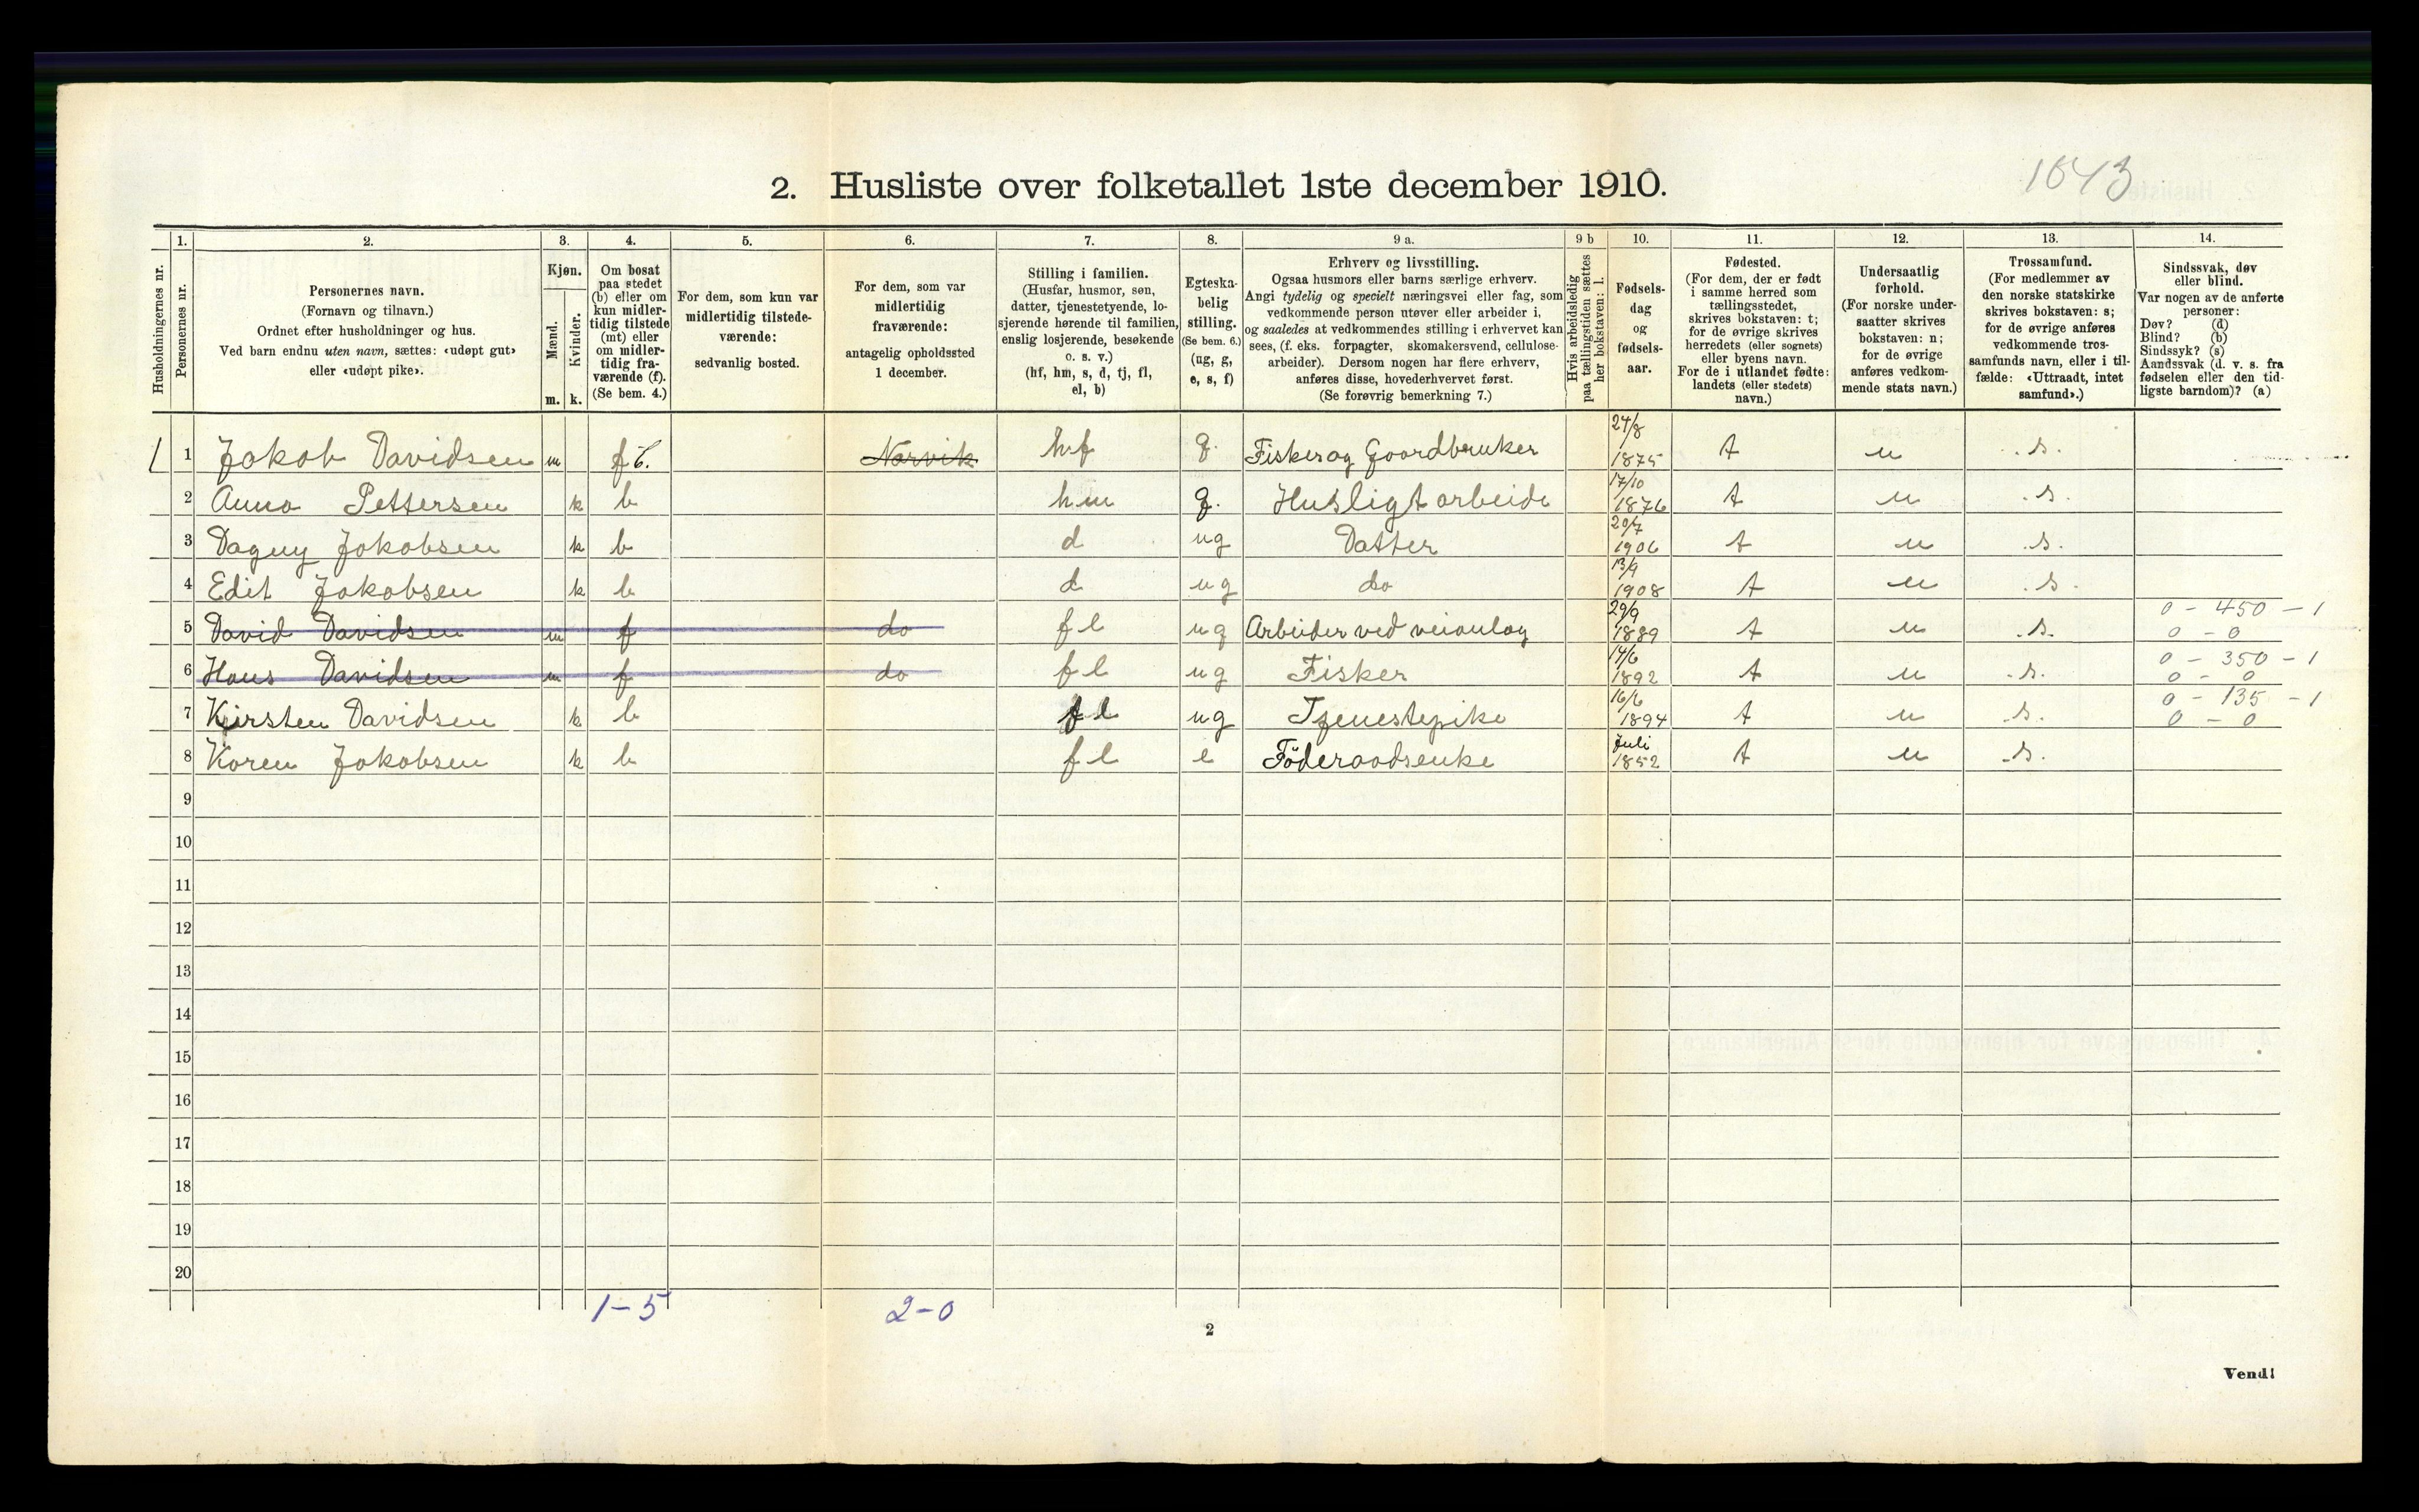 1843
2. Husliste over folketallet 1ste december 1910.
Husholdningernes nr.
1. Personernes nr.
2. Personernes navn.
(Fornavn og tilnavn.)
Ordnet efter husholdninger og hus.
Ved barn endnu uten navn, sættes: «udøpt gut»
eller «udøpt pike».
3. Kjøn.
Mænd. Kvinder.
m. k.
4. Om bosat
paa stedet
(b) eller om
kun midler-
tidig tilstede
(mt) eller
om midler-
tidig fra-
værende (f).
(Se bem. 4.)
5. For dem, som kun var
midlertidig tilstede-
værende:
sedvanlig bosted.
6. For dem, som var
midlertidig
fraværende:
antagelig opholdssted
1 december.
7. Stilling i familien.
(Husfar, husmor, søn,
datter, tjenestetyende, lo-
sjerende hørende til familien,
enslig losjerende, besøkende
o. s. v.)
(hf, hm, s, d, tj, fl,
el, b)
8. Egteska-
belig
stilling.
(Se bem. 6.)
(ug, g,
e, s, f)
9 a. Erhverv og livsstilling.
Ogsaa husmors eller barns særlige erhverv.
Angi tydelig og specielt næringsvei eller fag, som
vedkommende person utøver eller arbeider i,
og saaledes at vedkommendes stilling i erhvervet kan
sees, (f. eks. forpagter, skomakersvend, cellulose-
arbeider). Dersom nogen har flere erhverv,
anføres disse, hovederhvervet først.
(Se forøvrig bemerkning 7.)
9 b Hvis arbeidsledig
paa tællingstiden sættes
her bokstaven: l.
10. Fødsels-
dag
og
fødsels-
aar.
11. Fødested.
(For dem, der er født
i samme herred som
tællingsstedet,
skrives bokstaven: t;
for de øvrige skrives
herredets (eller sognets)
eller byens navn.
For de i utlandet fødte:
landets (eller stedets)
navn.)
12. Undersaatlig
forhold.
(For norske under-
saatter skrives
bokstaven: n;
for de øvrige
anføres vedkom-
mende stats navn.)
13. Trossamfund.
(For medlemmer av
den norske statskirke
skrives bokstaven: s;
for de øvrige anføres
vedkommende tros-
samfunds navn, eller i til-
fælde: «Uttraadt, intet
samfund».)
14. Sindssvak, døv
eller blind.
Var nogen av de anførte
personer:
Døv? (d)
Blind? (b)
Sindssyk? (s)
Aandssvak (d. v. s. fra
fødselen eller den tid-
ligste barndom)? (a)
1 1 Jakob Davidsen m f b. Narvik hf g. Fisker og Gaardbruker 24/8 1875 t n s.
2 Anna Pettersen k b hm g. Husligt arbeide 17/10 1876 t n s.
3 Dagny Jakobsen k b d ug Datter 20/7 1906 t n s.
4 Edit Jakobsen k b d ug do 13/9 1908 t n s.
5 David Davidsen m f do fl ug Arbeider ved veianlæg 29/9 1889 t n s. 0 - 450 - 1
0 - 0
6 Hans Davidsen m f do fl ug Fisker 14/6 1892 t n s. 0 - 350 - 1
0 - 0
7 Kirsten Davidsen k b fl ug Tjenestepike 16/6 1894 t n s. 0 - 135 - 1
0 - 0
8 Karen Jakobsen k b fl e Föderaadsenke Juli 1852 t n s.
9
10
11
12
13
14
15
16
17
18
19
20
1-5 2-0
2
Vend!